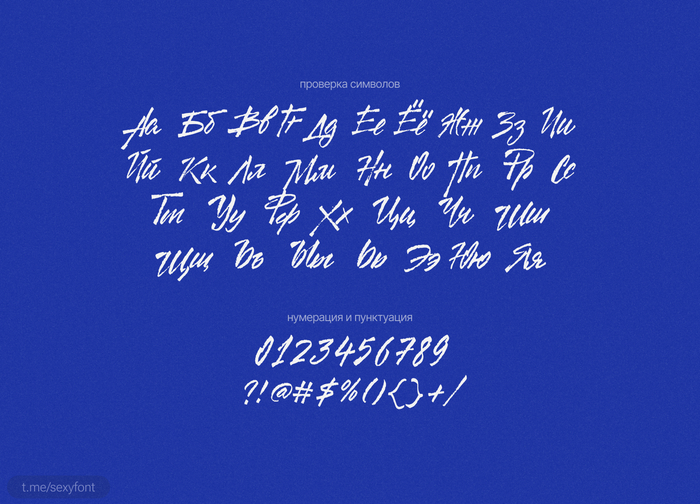 проверка символов
Аа Бб Вв Гг Дд Ее Ёё Жж Зз Ии
Йй Кк Лл Мм Нн Оо Пп Рр Сс
Тт Уу Фф Хх Цц Чч Шш
Щщ Ъъ Ыы Ьь Ээ Юю Яя
нумерация и пунктуация
0123456789
?!@#$%(){}+/
t.me/sexyfont